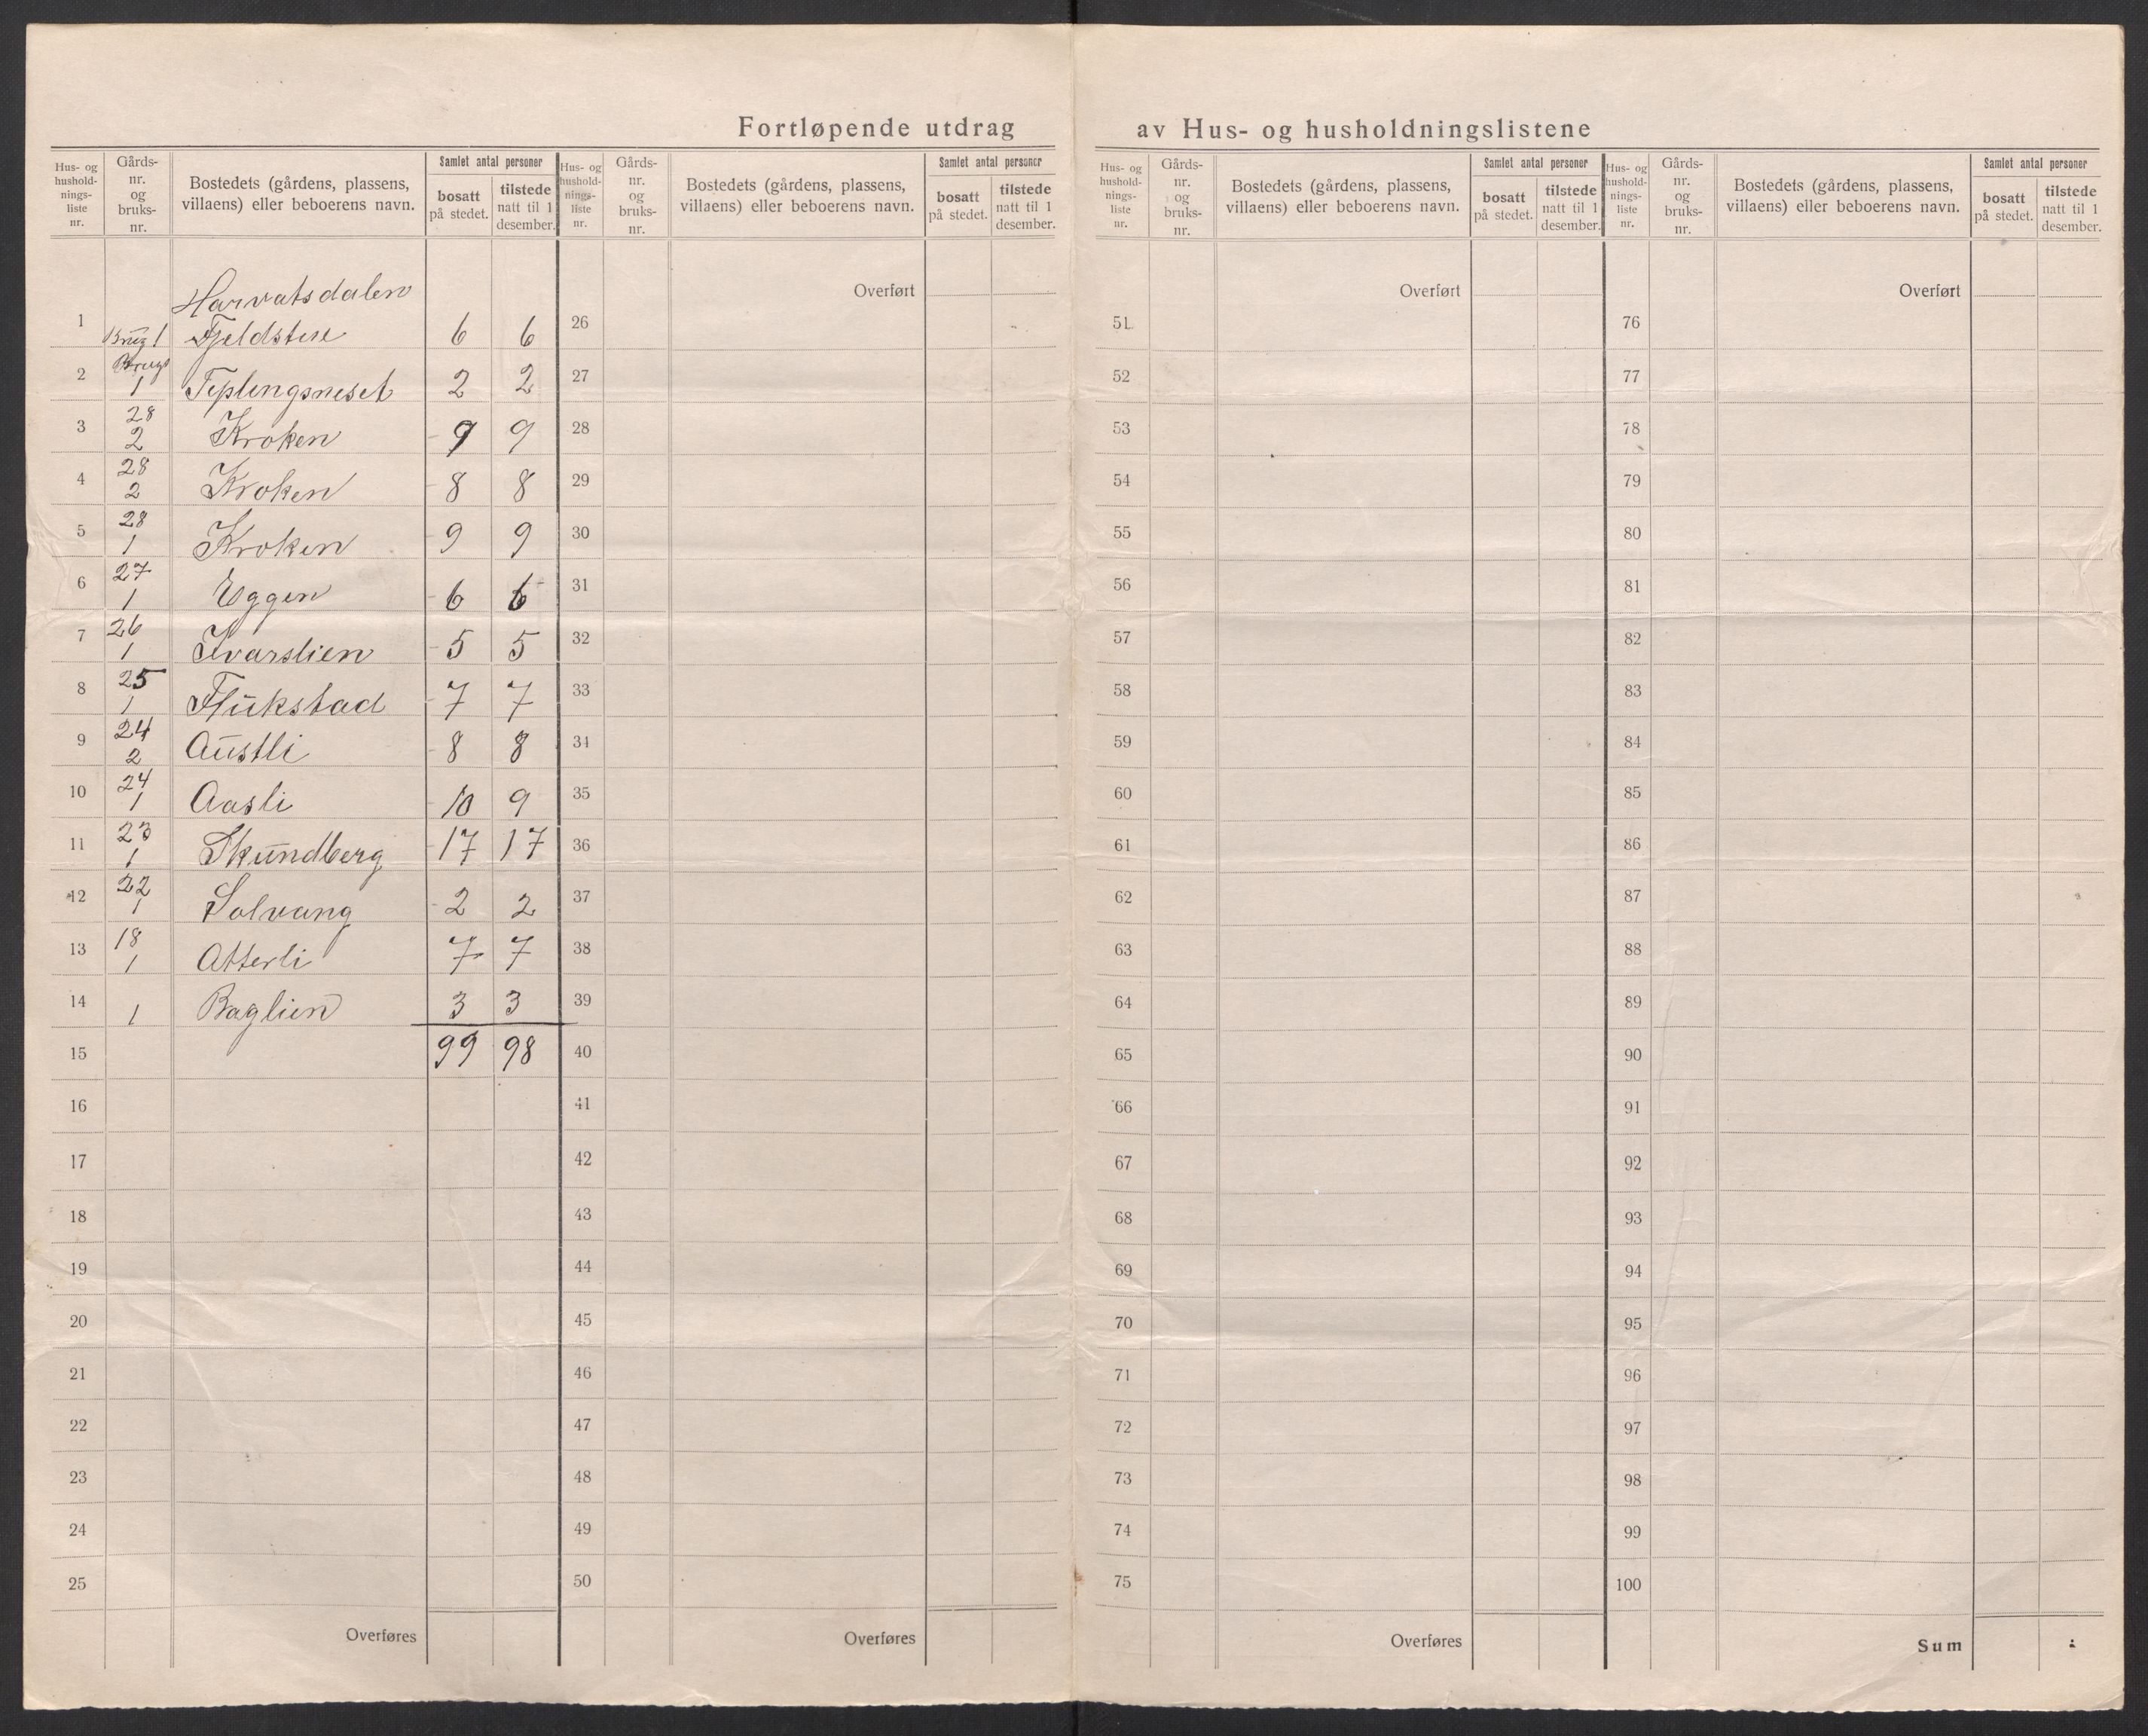 Fortløpende utdrag av Hus- og husholdningslistene
Hus- og husholdnings-liste nr. Gårds-nr. og bruks-nr. Bostedets (gårdens, plassens, villaens) eller beboerens navn. Samlet antal personer bosatt på stedet. tilstede natt til 1 desember.
Hus- og husholdnings-liste nr. Gårds-nr. og bruks-nr. Bostedets (gårdens, plassens, villaens) eller beboerens navn. Samlet antal personer bosatt på stedet. tilstede natt til 1 desember.
Hus- og husholdnings-liste nr. Gårds-nr. og bruks-nr. Bostedets (gårdens, plassens, villaens) eller beboerens navn. Samlet antal personer bosatt på stedet. tilstede natt til 1 desember.
Hus- og husholdnings-liste nr. Gårds-nr. og bruks-nr. Bostedets (gårdens, plassens, villaens) eller beboerens navn. Samlet antal personer bosatt på stedet. tilstede natt til 1 desember.
Harvatsdalen
1 Brug 1 6 6
2 Brug 1 Teplingsneset 2 2
3 28 2 Kroken 9 9
4 28 2 Kroken 8 8
5 28 1 Kroken 9 9
6 27 1 Eggen 6 6
7 26 1 Ivarslien 5 5
8 25 1 Flukstad 7 7
9 24 2 Austli 8 8
10 24 1 Aasli 10 9
11 23 1 Skundberg 17 17
12 22 1 Solvang 2 2
13 18 1 Atterli 7 7
14 1 Baglien 3 3
15 99 98
16
17
18
19
20
21
22
23
24
25
Overføres
Overført
26
27
28
29
30
31
32
33
34
35
36
37
38
39
40
41
42
43
44
45
46
47
48
49
50
Overføres
Overført
51
52
53
54
55
56
57
58
59
60
61
62
63
64
65
66
67
68
69
70
71
72
73
74
75
Overføres
Overført
76
77
78
79
80
81
82
83
84
85
86
87
88
89
90
91
92
93
94
95
96
97
98
99
100
Sum